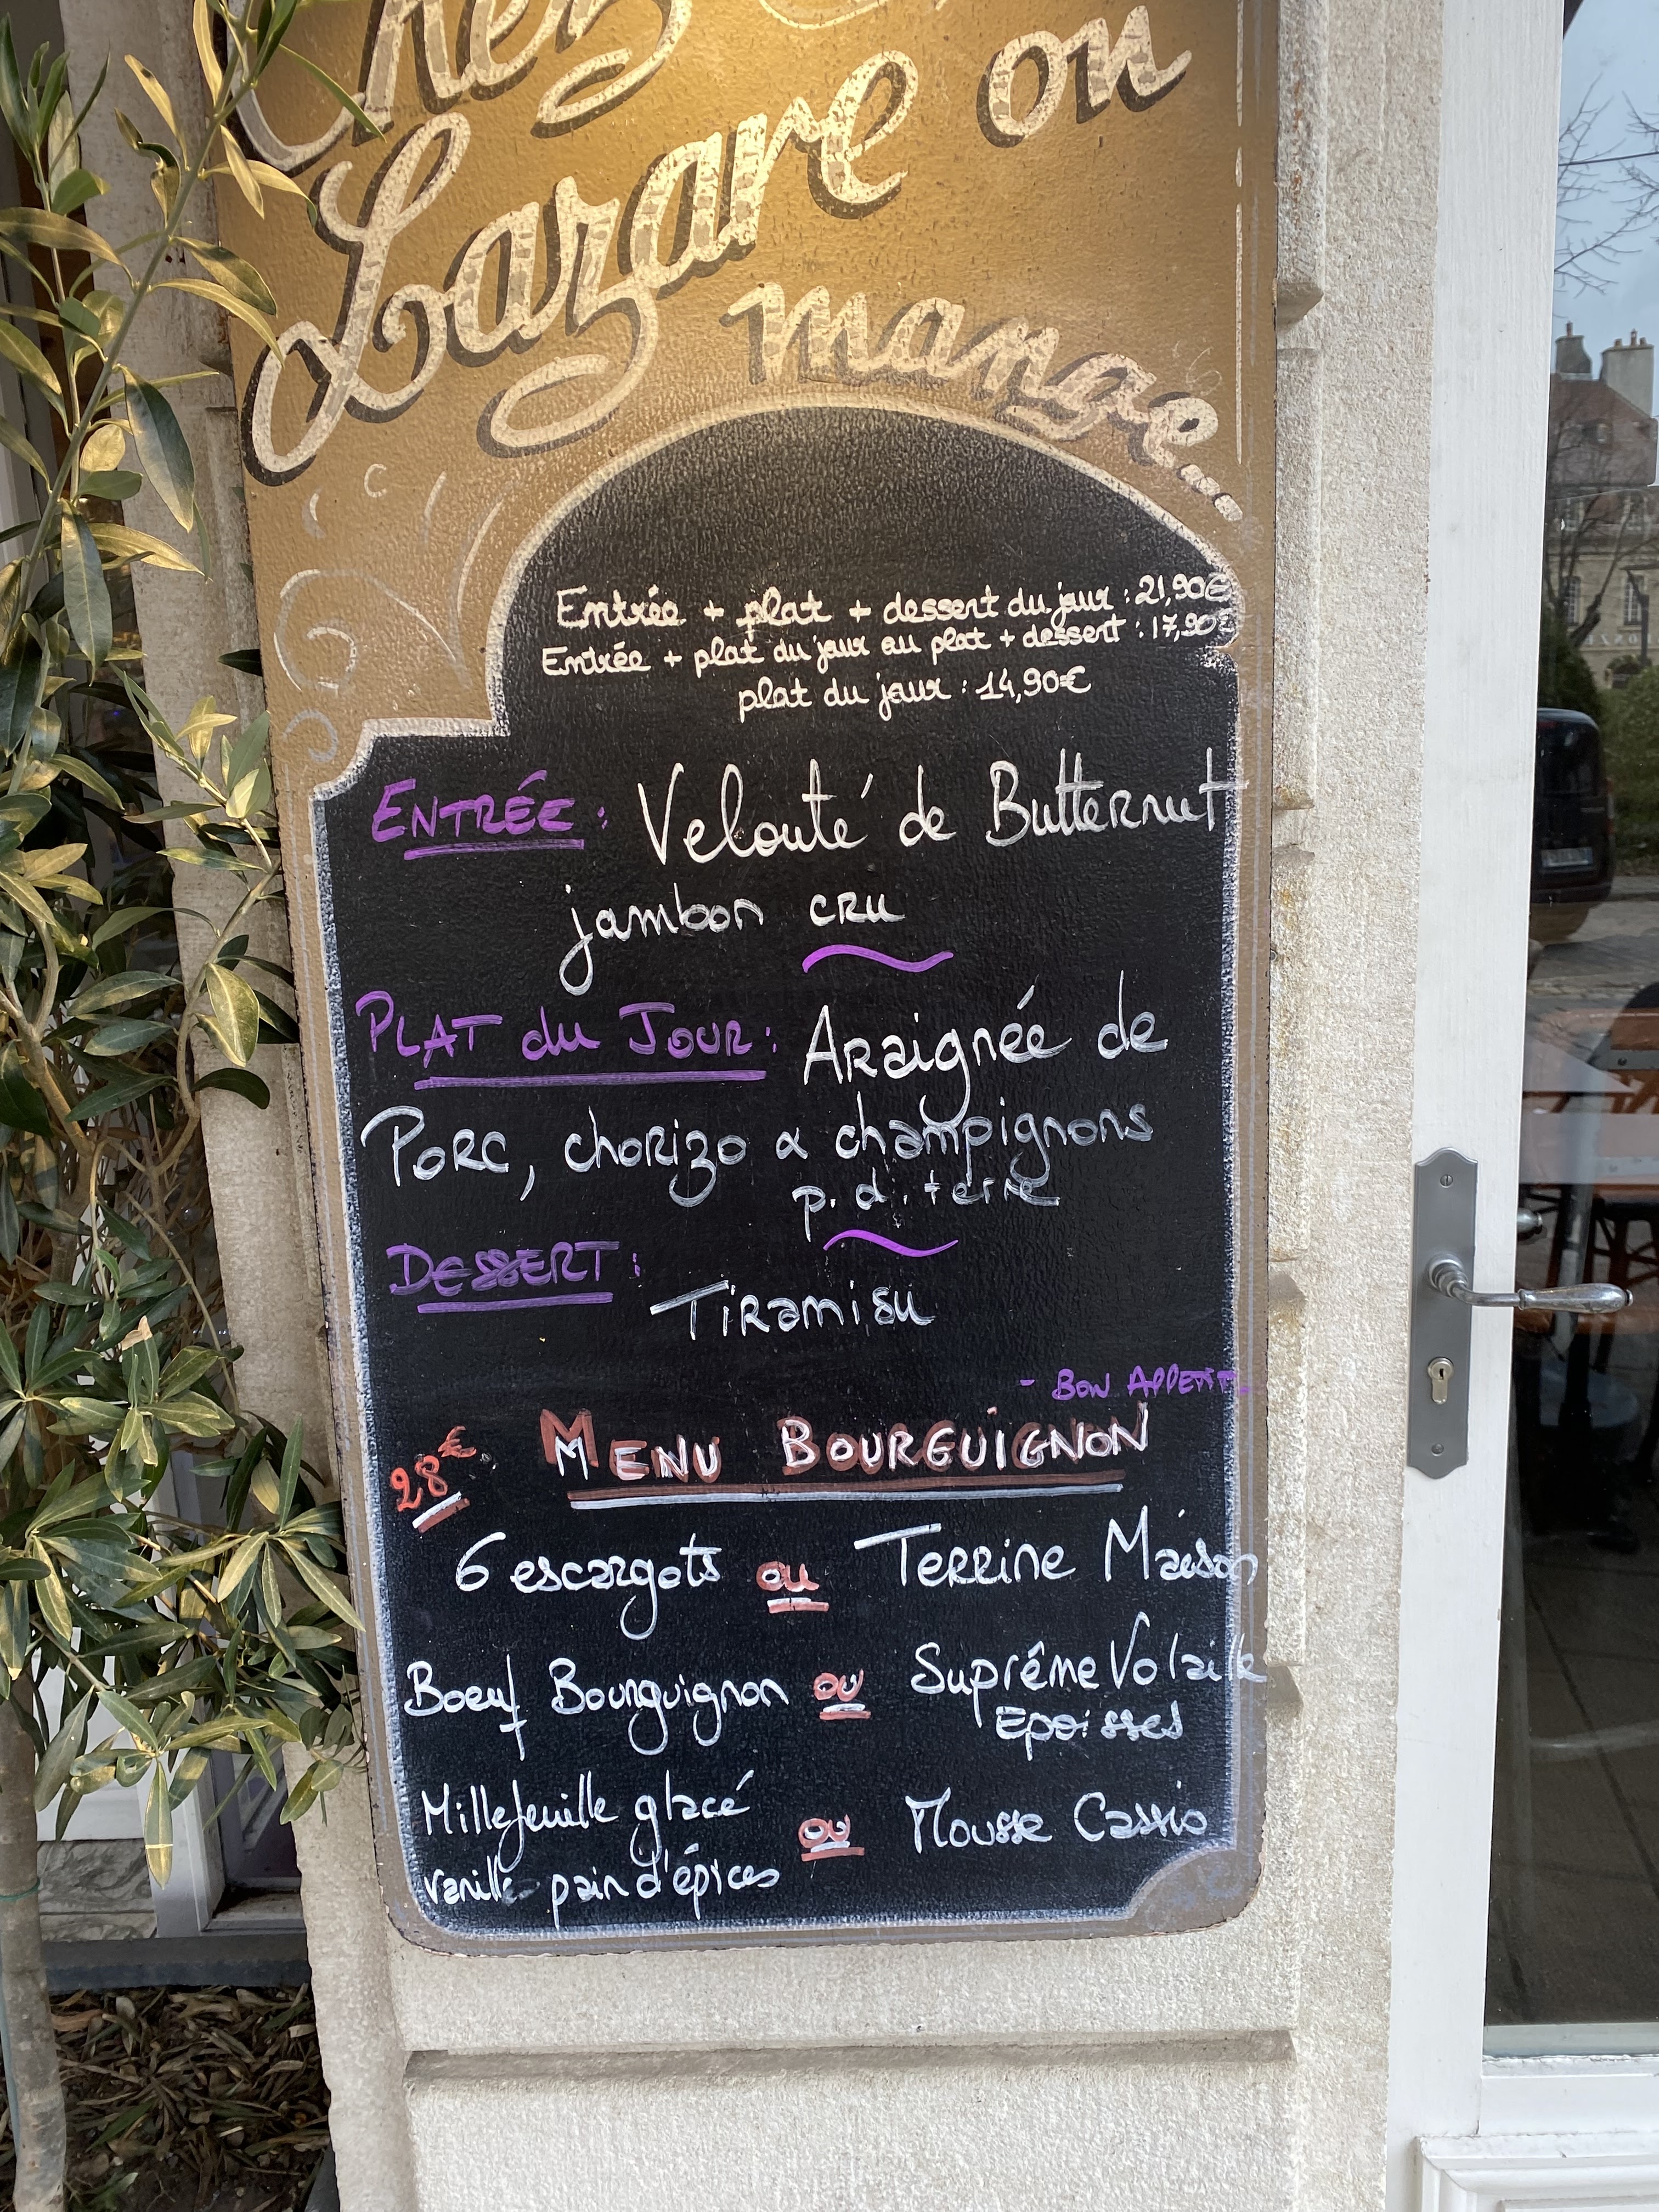 Chez
Lazare on
mange...
Entrée + plat + dessert du jour : 21,90€
Entrée + plat du jour ou plat + dessert : 17,90€
plat du jour : 14,90€
ENTRÉE : Velouté de Butternut
jambon cru
PLAT du JOUR : Araignée de
Porc, chorizo & champignons
p. d. terre
DESSERT :
Tiramisu
- BON APPETIT -
28€ MENU BOURGUIGNON
6 escargots ou Terrine Maison
Boeuf Bourguignon ou Suprême Volaille
Epoisses
Millefeuille glacé
vanille pain d'épices ou Mousse Cassis